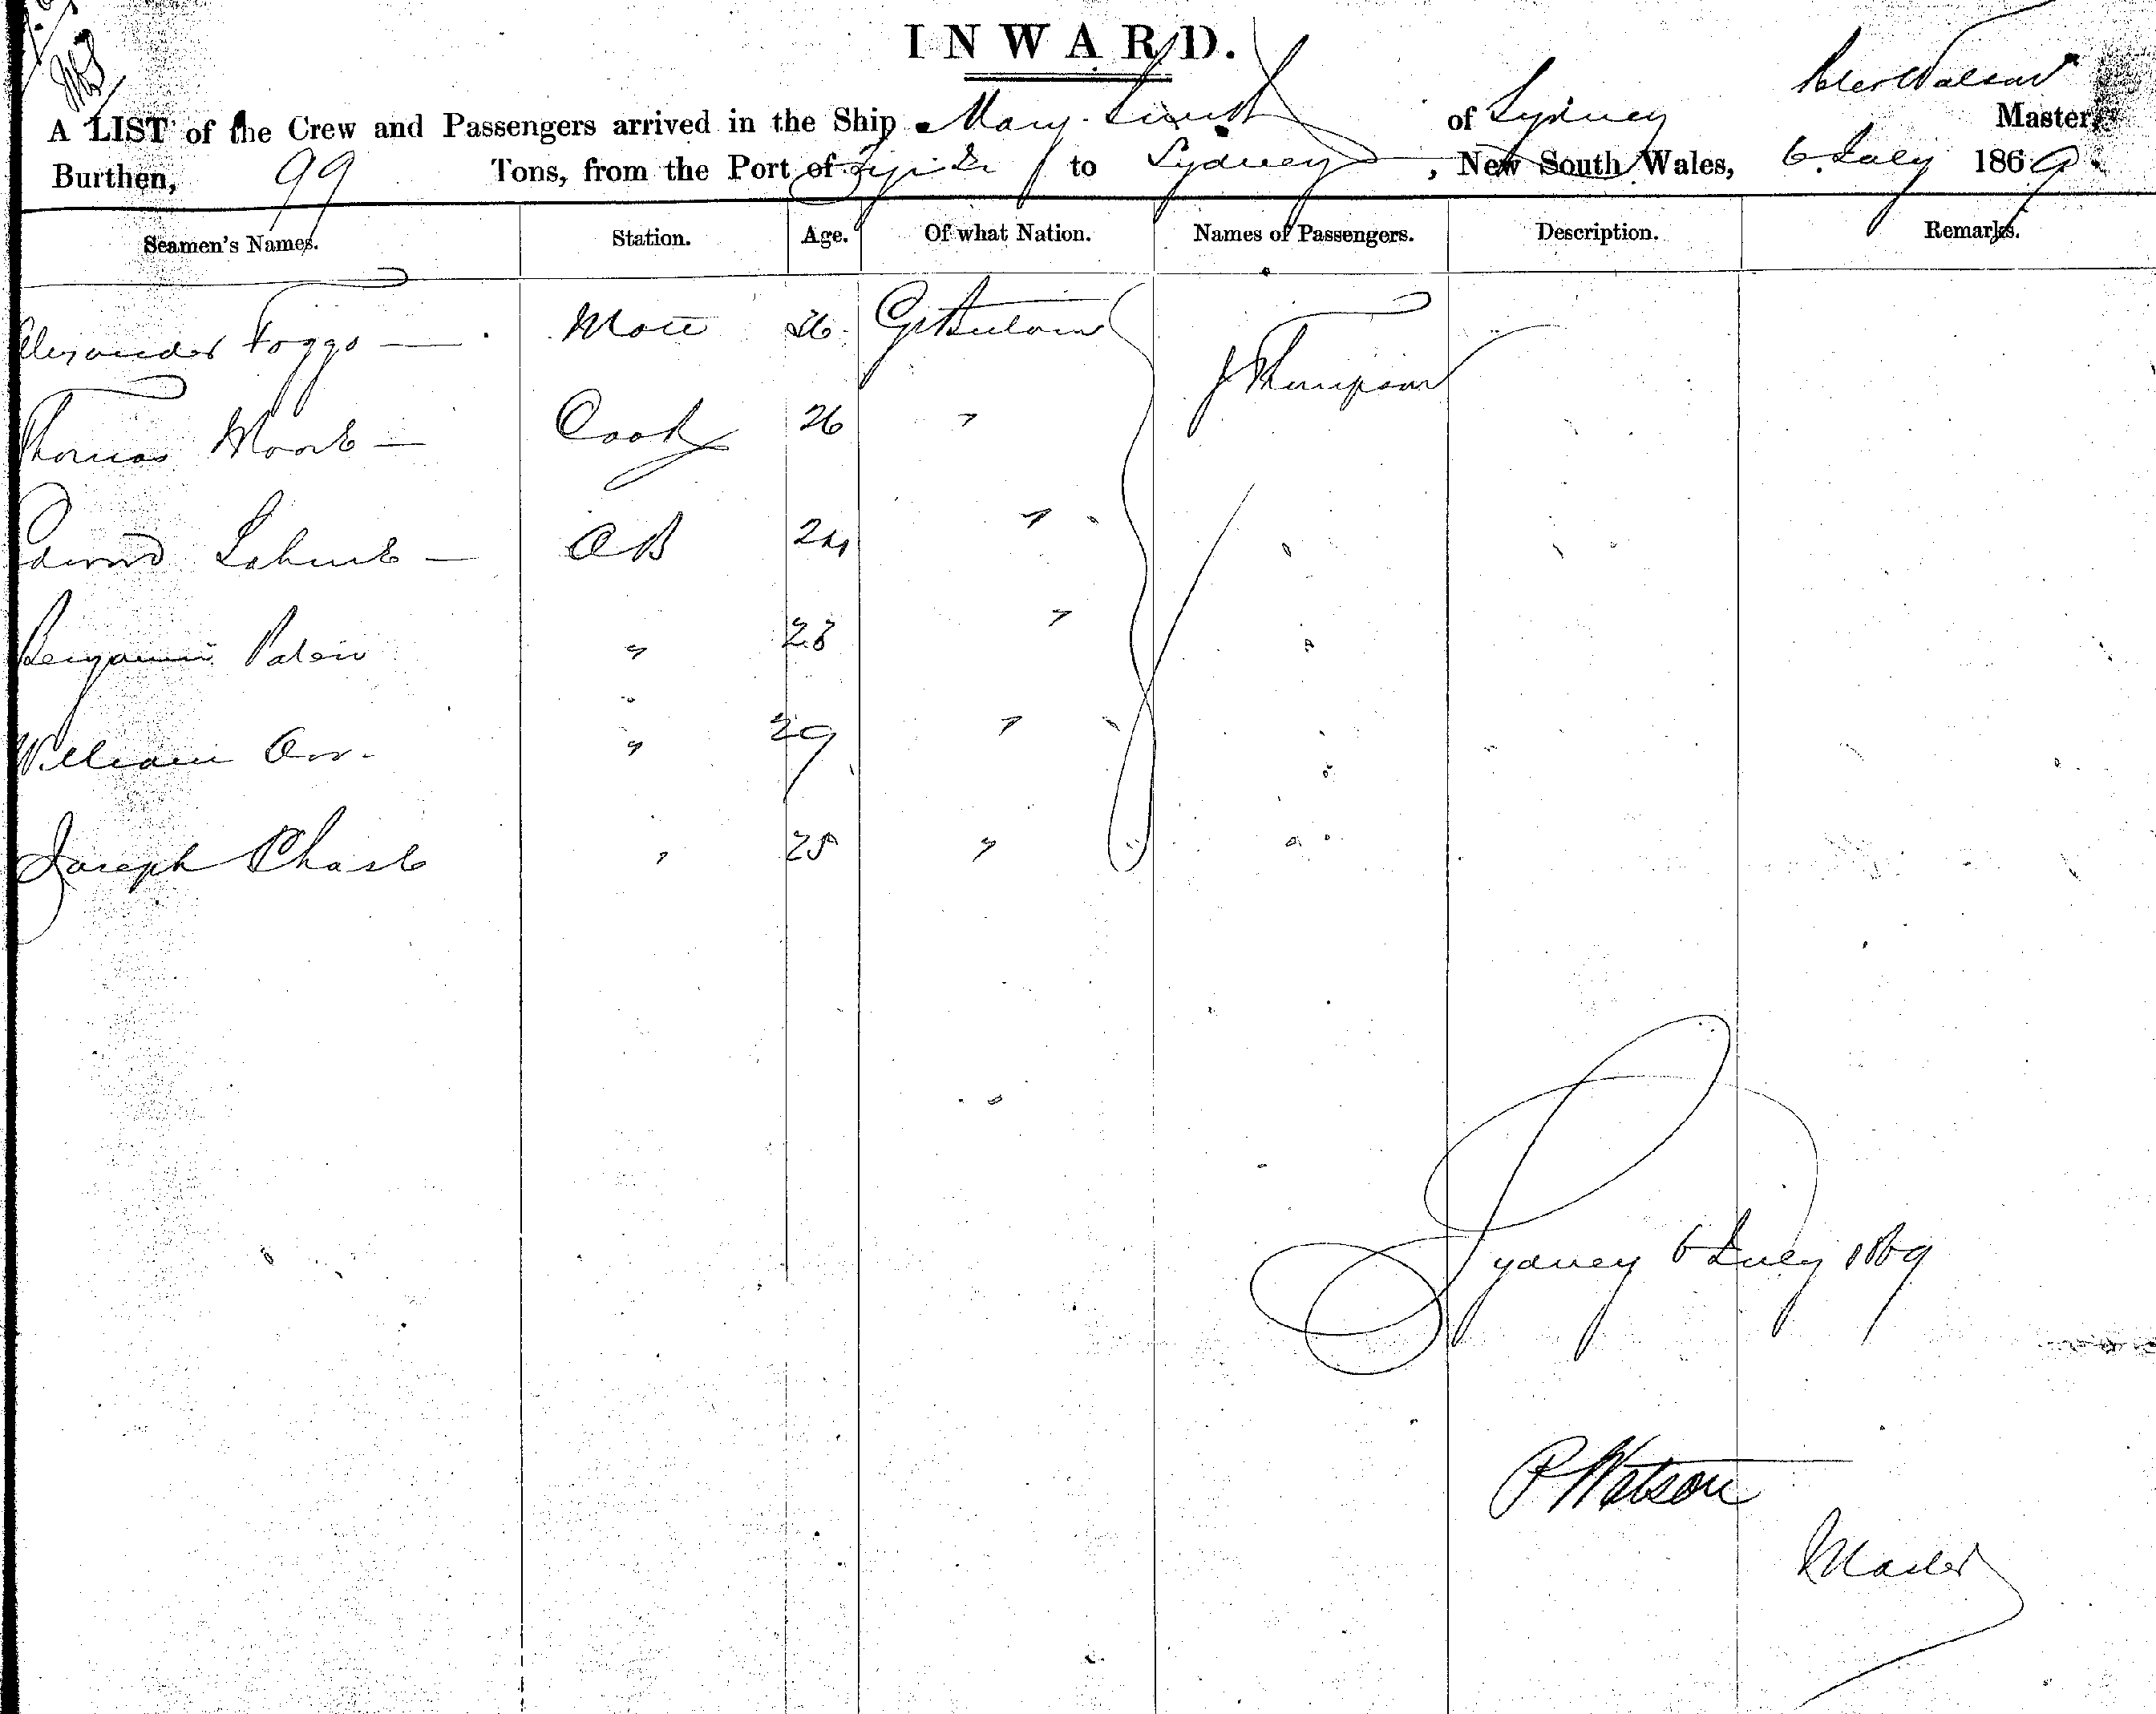 INWARD.
Peter Watson
A LIST of the Crew and Passengers arrived in the Ship Mary Smith of Sydney Master,
Burthen, 99 Tons, from the Port of to Sydney, New South Wales, 6 July 1869
Seamen's Names. Station. Age. Of what Nation. Names of Passengers. Description. Remarks.
Alexander Foggo — Mate 26 Gt Britain J Thompson
Thomas Moore — Cook 26 "
Edward — AB 24 "
Benjamin " 23 "
William Orr " 29 "
Joseph Chase " 25 "
Sydney 6 July 1869
P Watson
Master